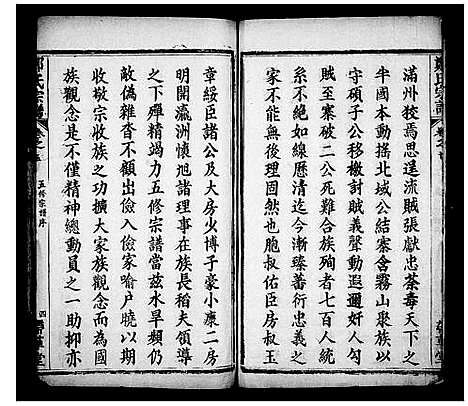 鄭氏宗譜
滿州狡焉思逞流賊張獻忠荼毒天下之
半國本動搖北域公結寨含霧山聚族以
守碩子公移檄討賊義聲動遐邇奸人勾
賊至寨破二公死難合族殉者七百人僅
系不絕如線歷清迄今漸臻蕃衍忠義之
固應無無後理固然也胞叔佑臣房叔玉
章綬臣諸公及大房火博子豪小康二房
明開瀛洲懷旭諸理事在族長稻夫領導
之下殫精竭力五修宗譜當茲水旱頻仍
敵偽雜沓不顧出儉入儉家喻戶曉以期
收敬宗收族之功擴大家族觀念而為國
族觀念是不僅精神總動員之一助抑亦
鄭氏宗譜
五修宗譜序
四